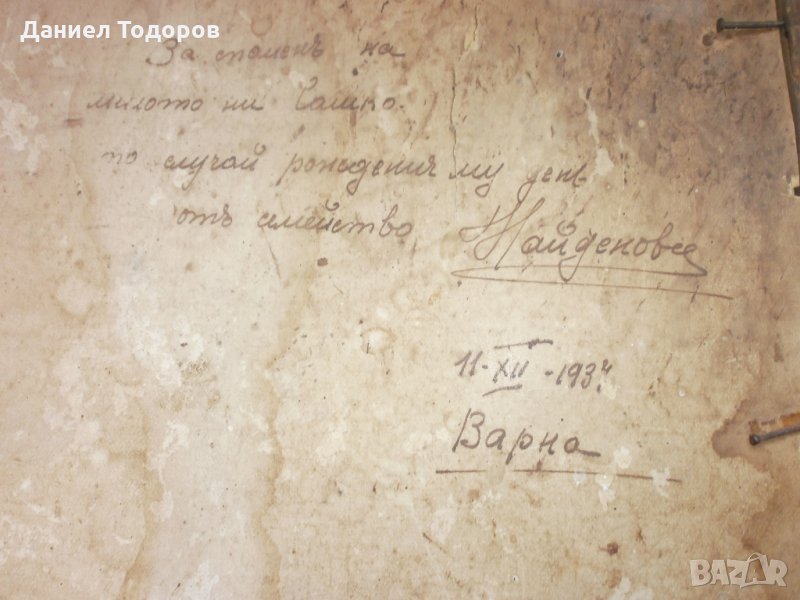 Даниел Тодоров
За споменъ на
милото ни Сашко.
по случай рождения му день
отъ семейство Найденови
11-XII-1934
Варна
BAZAR